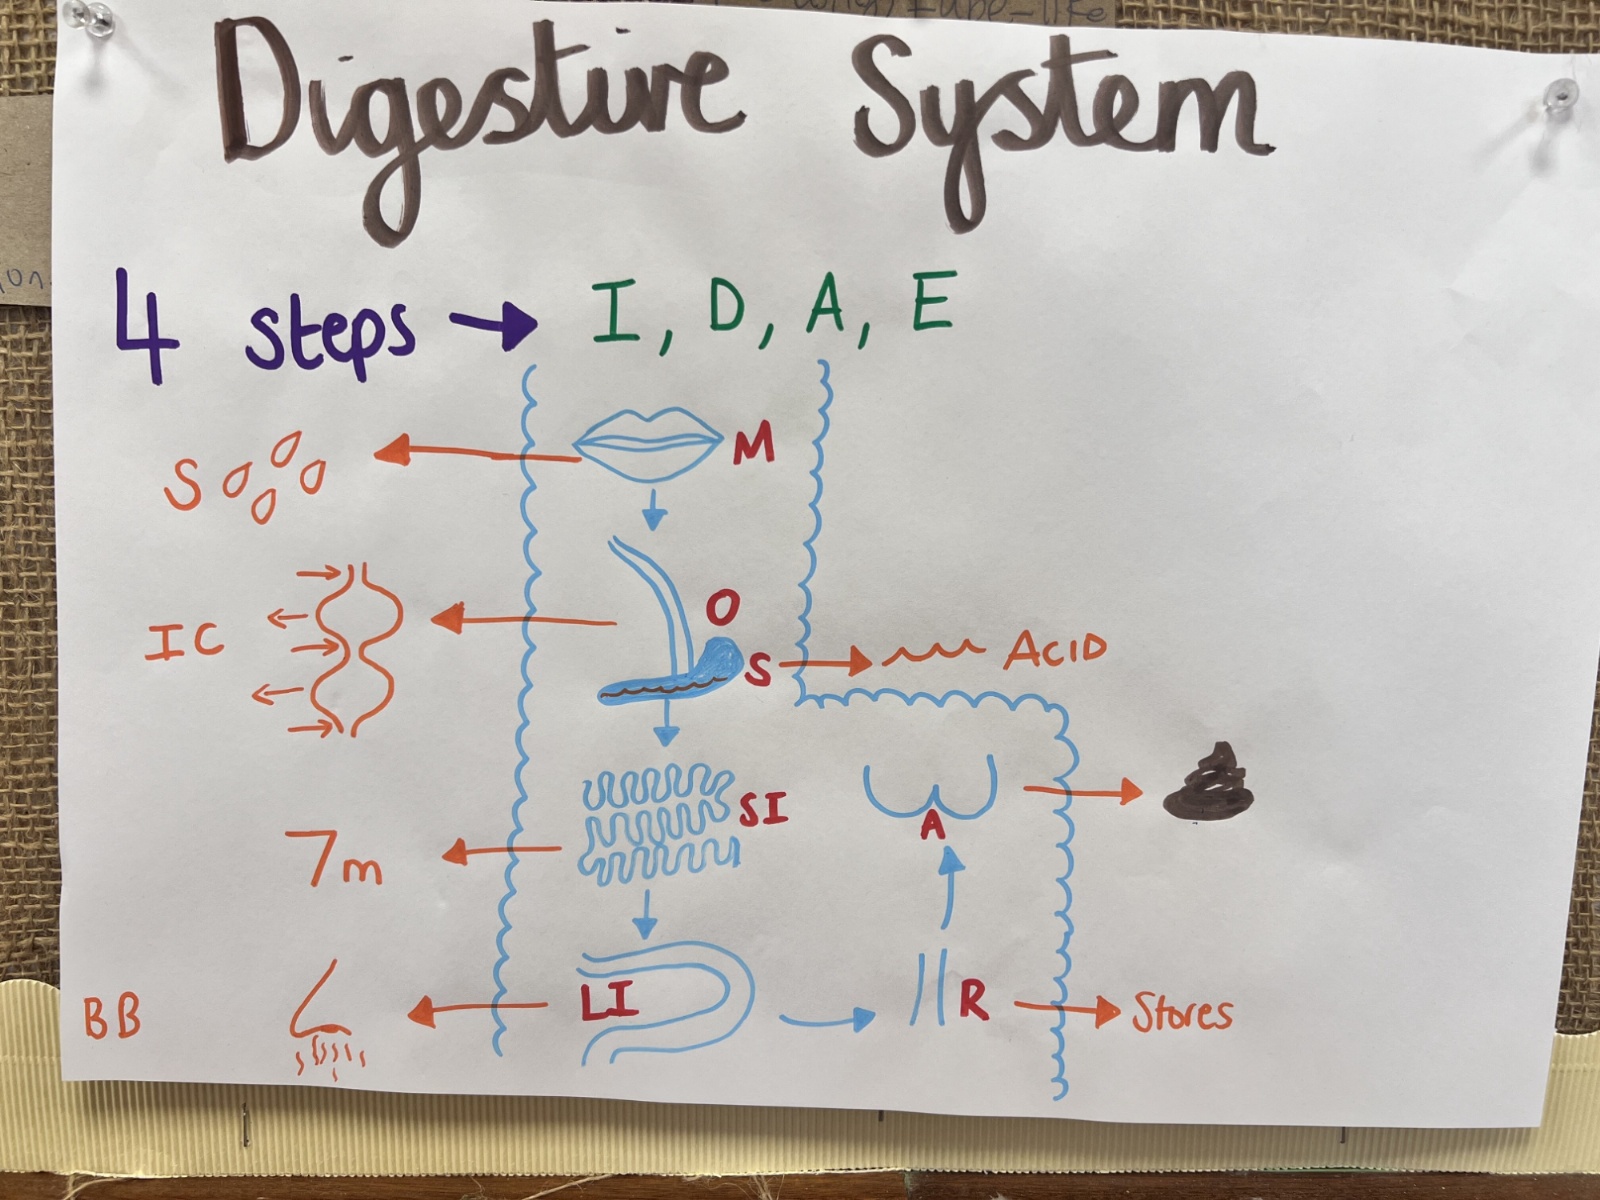 Digestive System
4 steps → I, D, A, E
M
S
O
IC
S
ACID
SI
A
7m
LI
R
Stores
BB